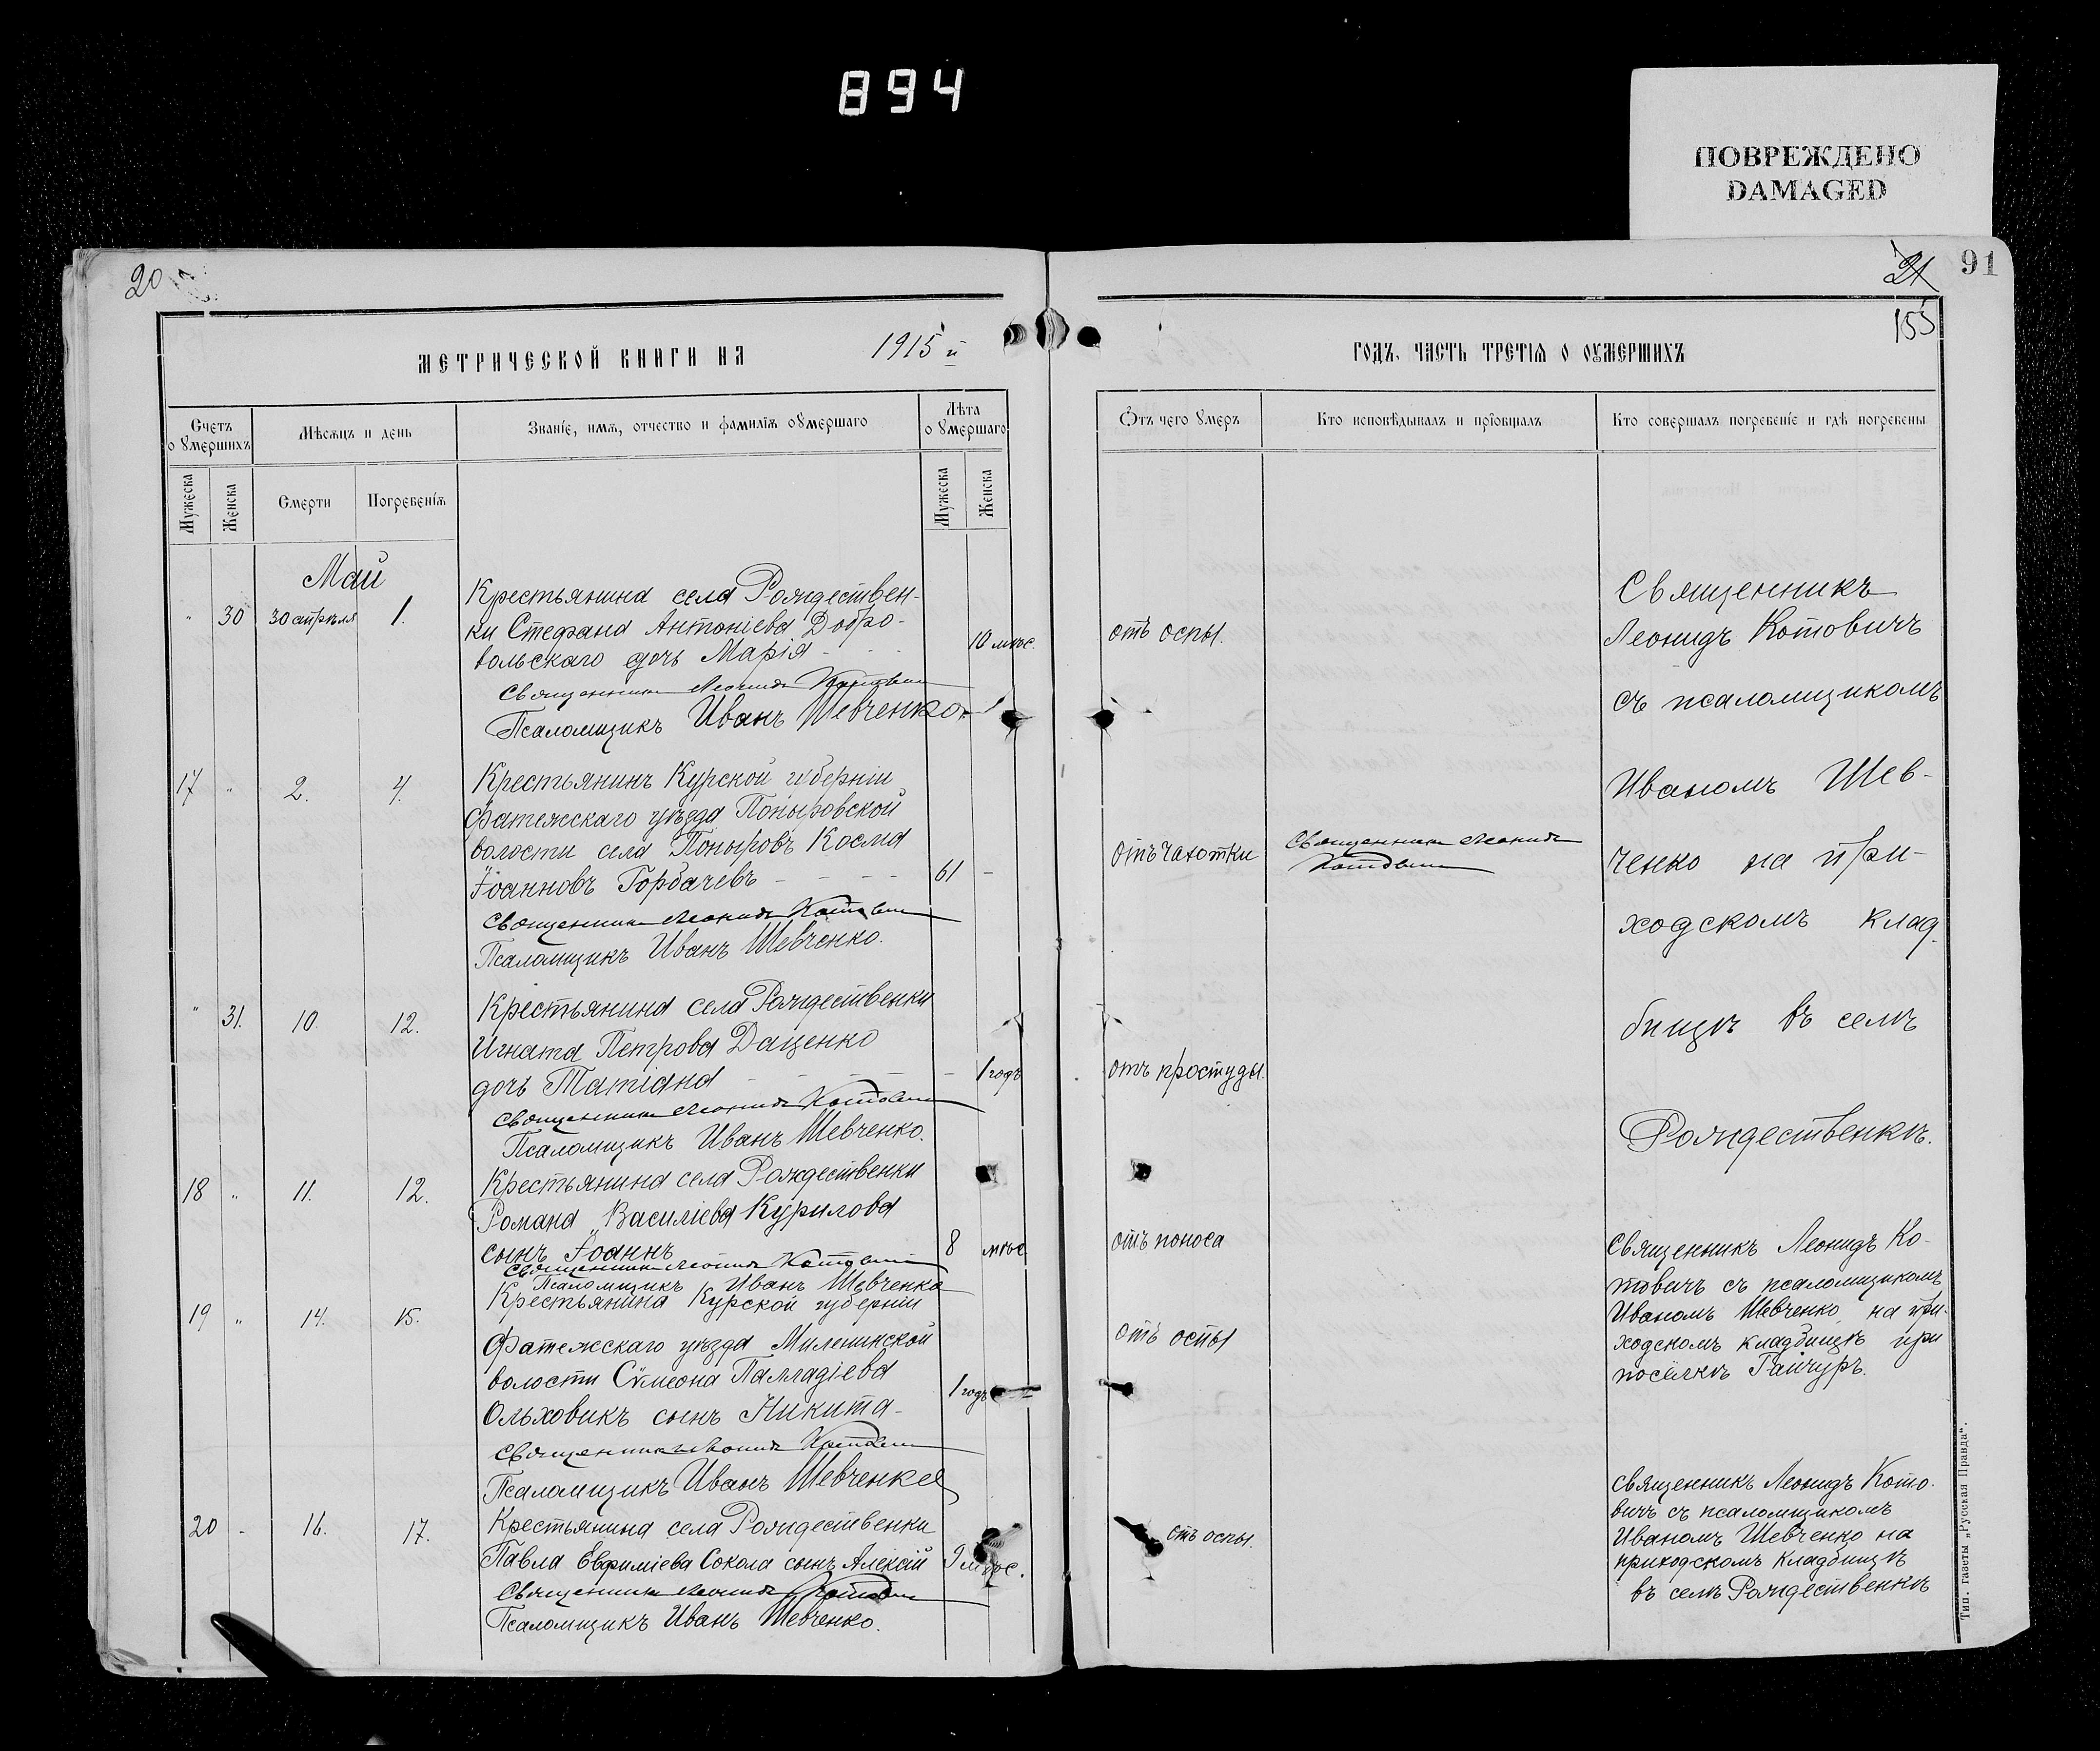 894
ПОВРЕЖДЕНО
DAMAGED
20
21
91
155
МЕТРИЧЕСКОЙ КНИГИ НА 1915 й
ГОДЪ, ЧАСТЬ ТРЕТІЯ О ОУМЕРШИХЪ
Счетъ оумершихъ
Мѣсяцъ и день
Званіе, имя, отчество и фамилія оумершаго
Лѣта оумершаго
Отъ чего умеръ
Кто исповѣдывалъ и пріобщалъ
Кто совершалъ погребеніе и гдѣ погребены
Мужеска
Женска
Смерти
Погребенія
Мужеска
Женска
Май
" 30 30 апрѣля 1.
Крестьянина села Рождествен-
ки Стефана Антоніева Добро-
вольскаго дочь Марія - - -
10 мѣс.
отъ оспы.
Священникъ Леонидъ Котовичъ
Псаломщикъ Иванъ Шевченко.
17 " 2. 4.
Крестьянинъ Курской губерніи
Фатежскаго уѣзда Поныровской
волости села Поныровъ Косма
Іоанновъ Горбачевъ - - - -
61 -
отъ чахотки
Священникъ Леонидъ
Котовичъ
Священникъ Леонидъ Котовичъ
Псаломщикъ Иванъ Шевченко.
" 31. 10. 12.
Крестьянина села Рождественки
Игната Петрова Даценко
дочь Татіана - - - - -
- 1 годъ
отъ простуды.
Священникъ Леонидъ Котовичъ
Псаломщикъ Иванъ Шевченко.
Священникъ
Леонидъ Котовичъ
съ псаломщикомъ
Иваномъ Шев-
ченко на при-
ходскомъ клад-
бищѣ въ селѣ
Рождественкѣ.
18 " 11. 12.
Крестьянина села Рождественки
Романа Василіева Курилова
сынъ Іоаннъ
8 мѣс
отъ поноса
Священникъ Леонидъ Котовичъ
Псаломщикъ Иванъ Шевченко
19 " 14. 15.
Крестьянина Курской губерніи
Фатежскаго уѣзда Миленинской
волости Сѵмеона Палладіева
Ольховикъ сынъ Никита -
1 годъ
отъ оспы
Священникъ Леонидъ Котовичъ
Псаломщикъ Иванъ Шевченко
Священникъ Леонидъ Ко-
товичъ съ псаломщикомъ
Иваномъ Шевченко на при-
ходскомъ кладбищѣ при
посёлкѣ Гайчуръ.
20 - 16. 17.
Крестьянина села Рождественки
Павла Евфиміева Сокола сынъ Алексій
9 мѣс.
отъ оспы.
Священникъ Леонидъ Котовичъ
Псаломщикъ Иванъ Шевченко.
Священникъ Леонидъ Кото-
вичъ съ псаломщикомъ
Иваномъ Шевченко на
приходскомъ кладбищѣ
въ селѣ Рождественкѣ
Тип. газеты „Русская Правда“.